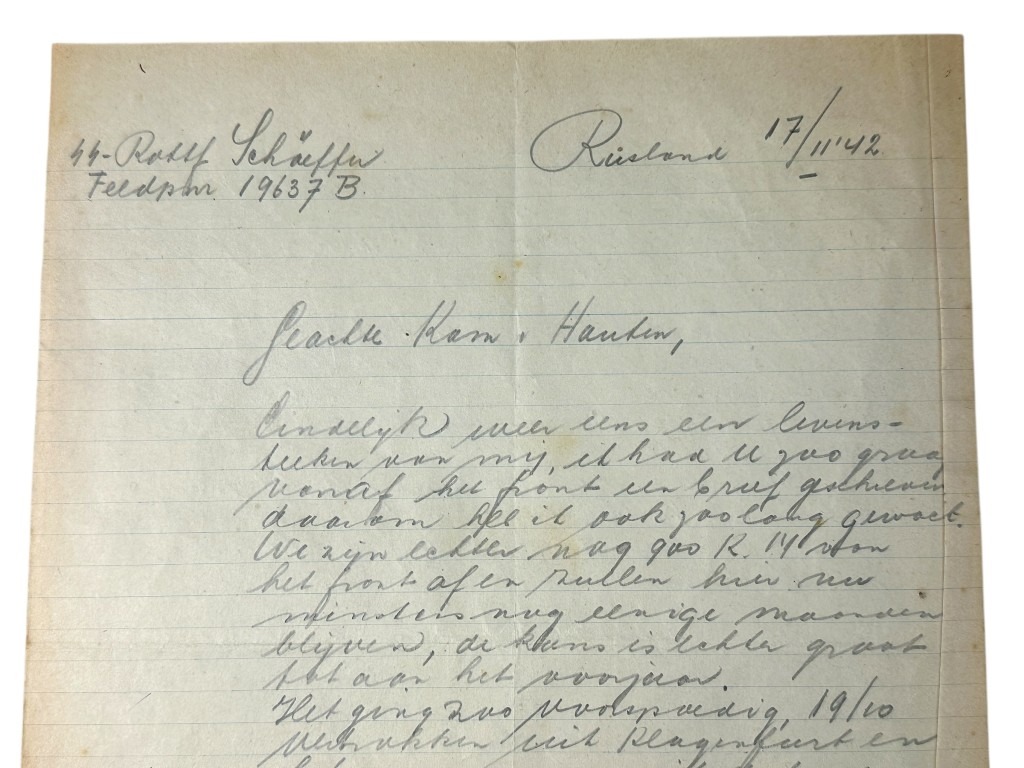 SS-Rottf Schäeffer
Rusland 17/11'42
Feldpnr. 19637 B.
Geachte Kam. v. Houten,
Eindelijk weer eens een levens-
teeken van mij, ik had U zoo graag
vanaf het front een brief geschreven
daarom heb ik ook zoolang gewacht.
We zijn echter nog 900 K.M van
het front af en zullen hier nu
minstens nog eenige maanden
blijven, de kans is echter groot
tot aan het voorjaar.
Het ging zoo voorspoedig, 19/10
vertrokken uit Klagenfurt en